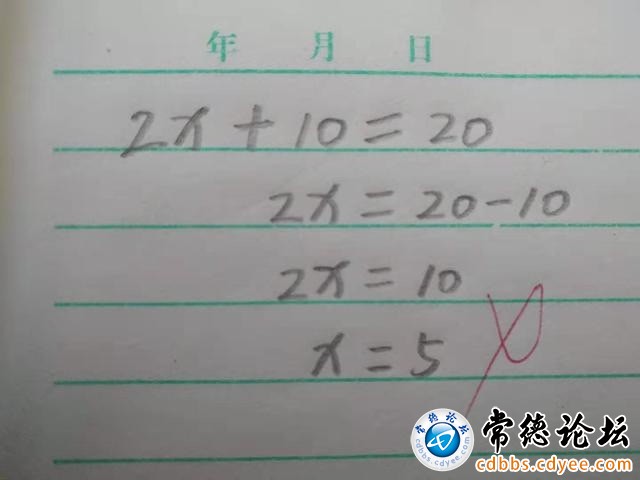 年 月 日
2x+10=20
2x=20-10
2x=10
x=5
常德论坛
cdbbs.cdyee.com